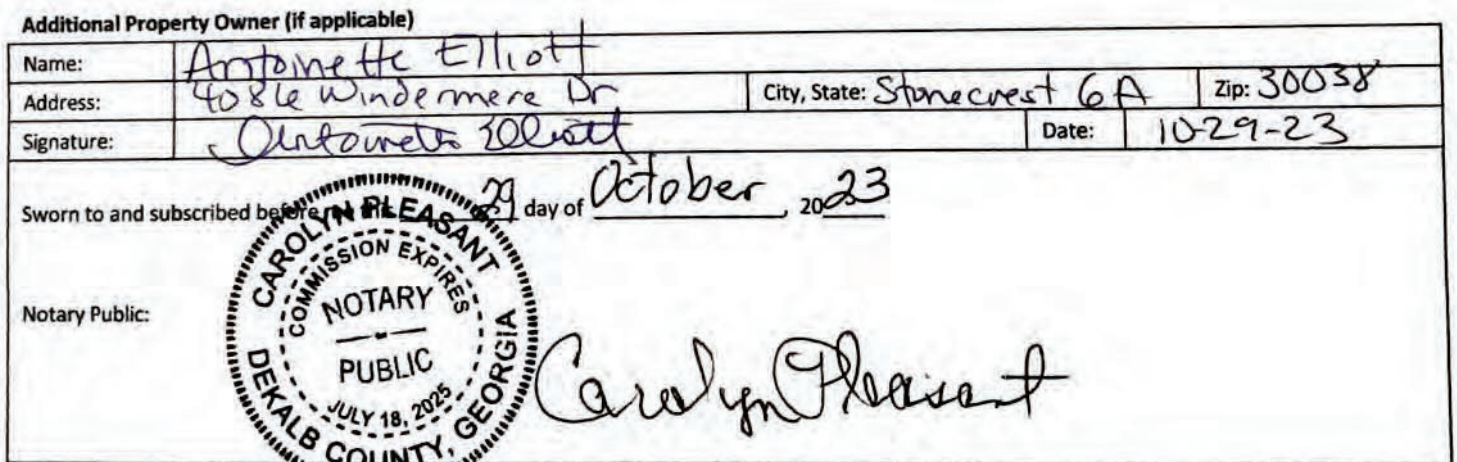 Additional Property Owner (if applicable)
Name: Antoinette Elliott
Address: 4086 Windermere Dr City, State: Stonecrest GA Zip: 30038
Signature: Antoinette Elliott Date: 10-29-23
Sworn to and subscribed before me this 29 day of October, 2023
CAROLYN PLEASANT
COMMISSION EXPIRES
NOTARY
PUBLIC
JULY 18, 2025
DEKALB COUNTY, GEORGIA
Notary Public: Carolyn Pleasant